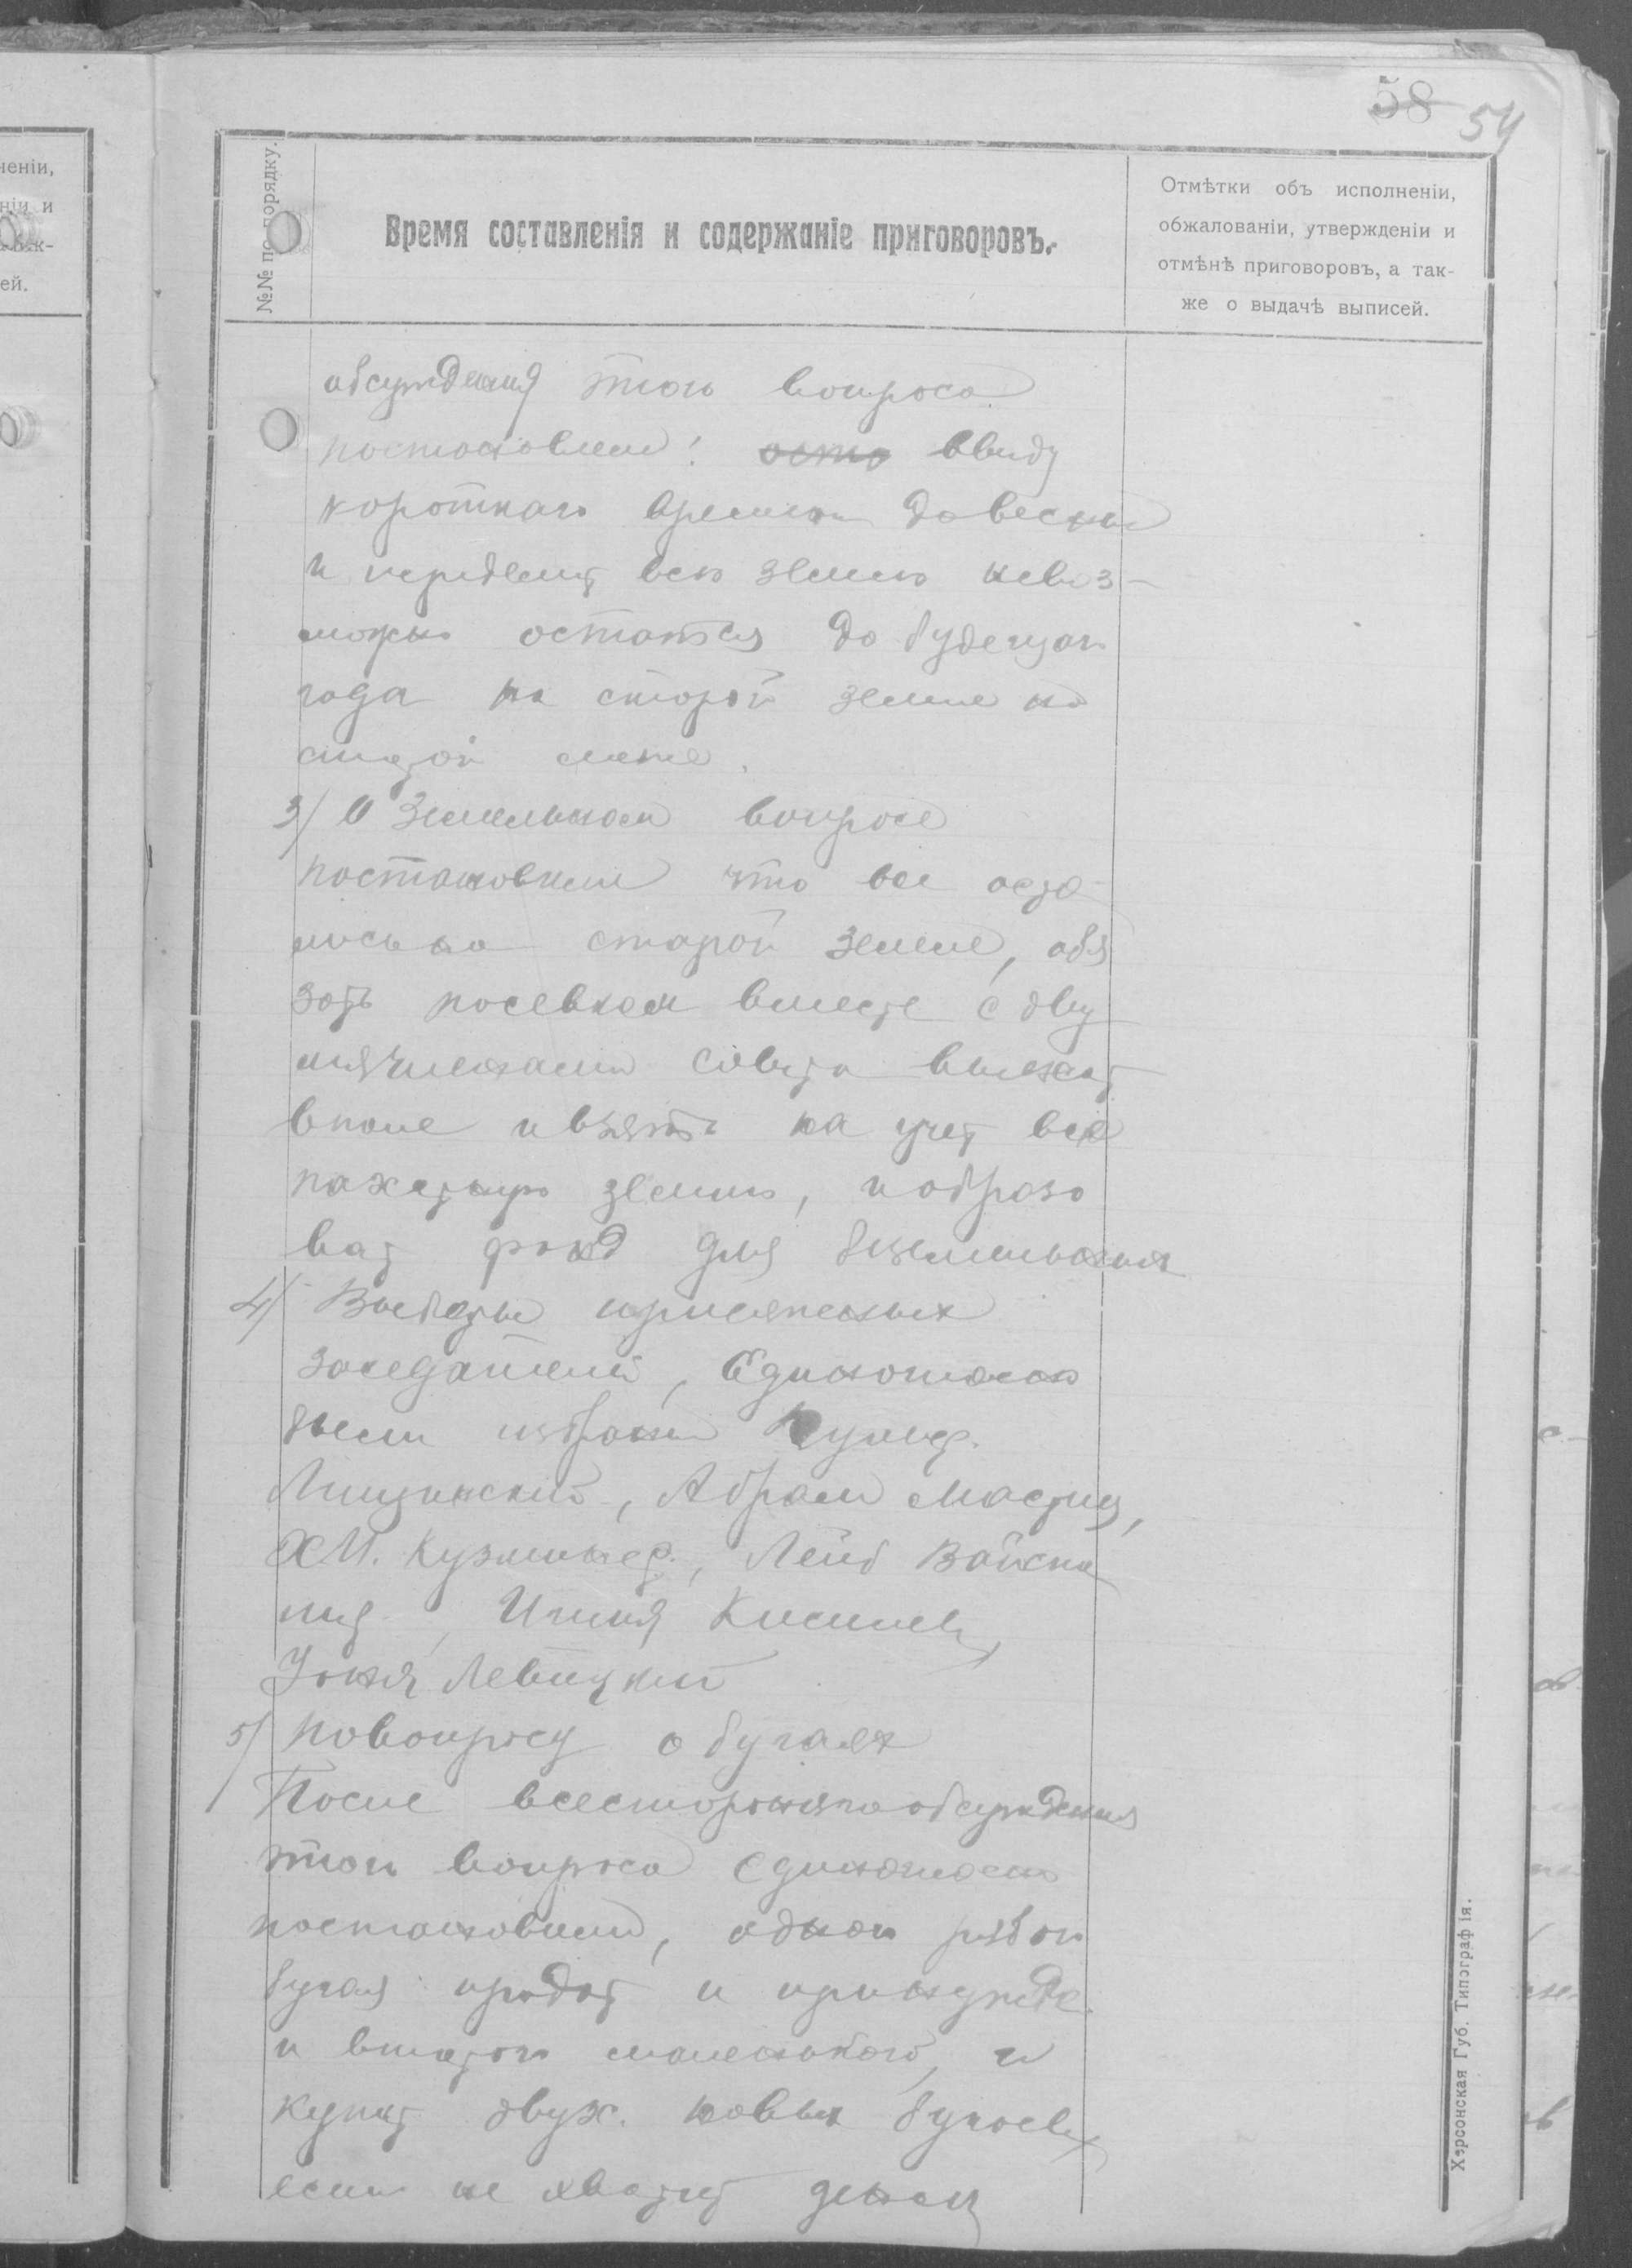 58 54
№№ по порядку.
Время составленія и содержаніе приговоровъ.
Отмѣтки объ исполненіи,
обжалованіи, утвержденіи и
отмѣнѣ приговоровъ, а так-
же о выдачѣ выписей.
обсуждения этого вопроса
постановлено: ввиду
короткаго времени до весны
и переделит всю землю невоз-
можно остаться до будещаго
года на старой земле на
старой
3) О Земельном вопросе
постановили что все оста
лись на старой земле, обя
зать посевком вместе с дву
мя членами совета выехат
в поле и взять на учет всю
пахатную землю, и образо
ват фонд для безземельных
4) Выборы присяжных
заседателей, Единогласно
были избраны
Лищинский, Абрам
ХМ. Кузминер., Лейб Вайсма
Кисилев,
Левицкий
5) По вопросу о бугаях
После всестороняго обсуждения
этого вопроса единогласно
постановили, одного рябого
бугая продат и
и второго маленького, и
купит двух новых бугаев,
если не хватит денег
Херсонская Губ. Типографія.